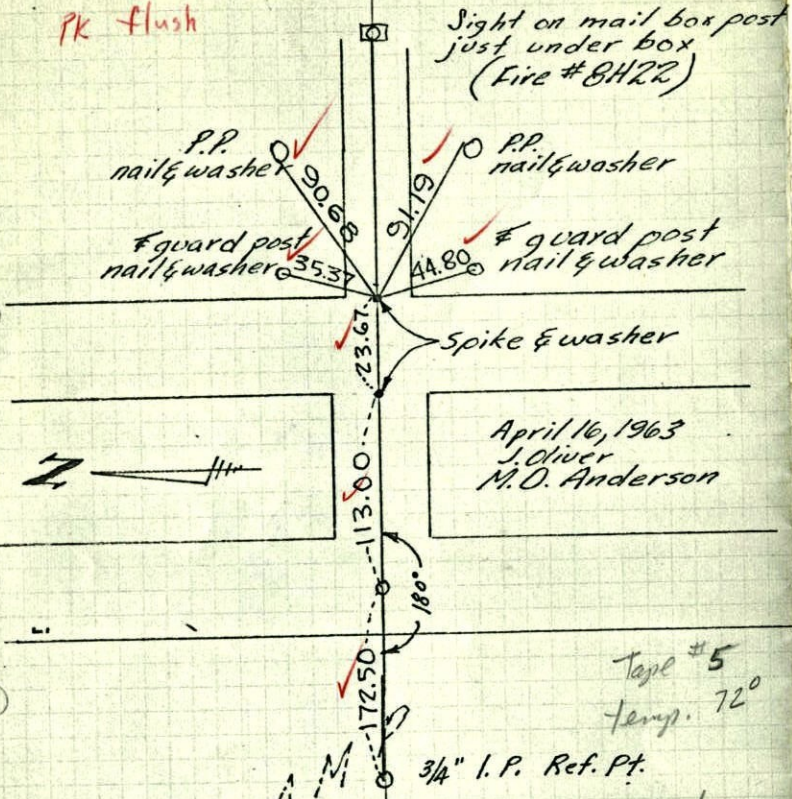 PK flush
Sight on mail box post
just under box
(Fire #8H22)
P.P.
nail & washer
90.68
91.19
P.P.
nail & washer
℄ guard post
nail & washer
35.37
44.80
℄ guard post
nail & washer
23.67
Spike & washer
N
April 16, 1963
J. Oliver
M.O. Anderson
113.00
180°
172.50
Tape #5
temp. 72°
3/4" I.P. Ref. Pt.